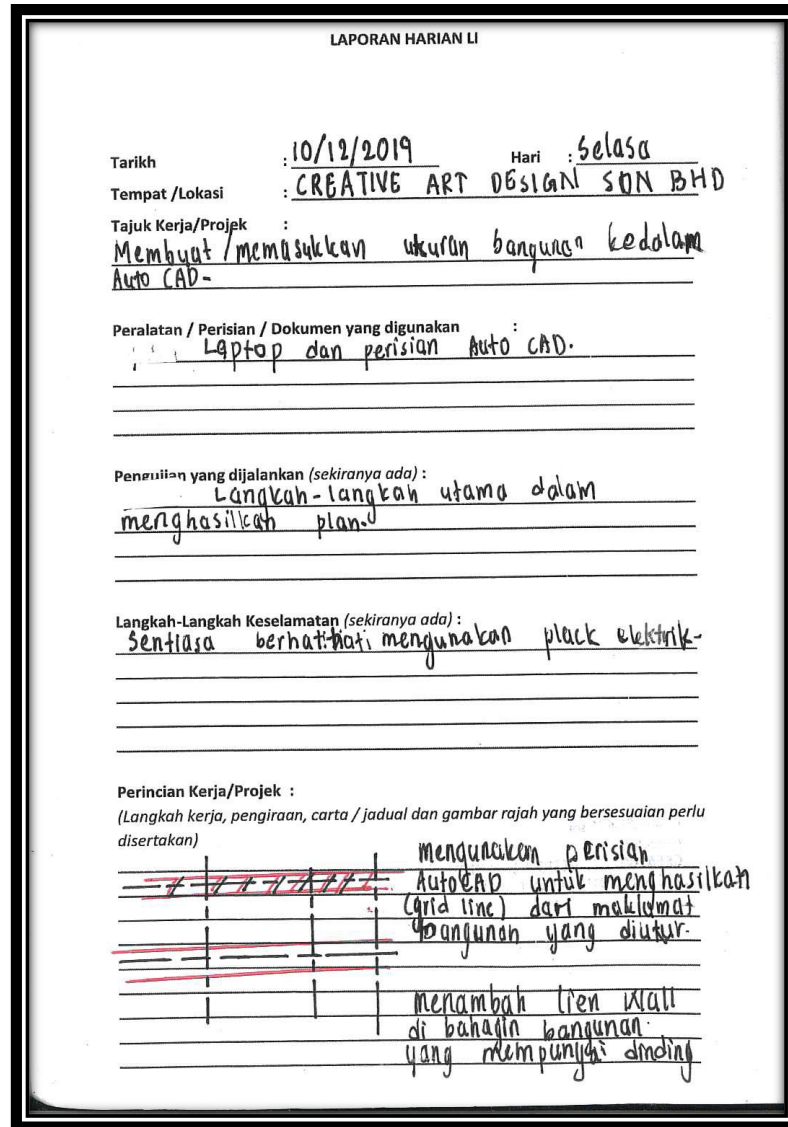 LAPORAN HARIAN LI
Tarikh : 10/12/2019 Hari : Selasa
Tempat /Lokasi : CREATIVE ART DESIGN SDN BHD
Tajuk Kerja/Projek :
Membuat / memasukkan ukuran bangunan kedalam
Auto CAD-
Peralatan / Perisian / Dokumen yang digunakan :
Laptop dan perisian Auto CAD.
Pengujian yang dijalankan (sekiranya ada) :
Langkah-langkah utama dalam
menghasilkan plan.
Langkah-Langkah Keselamatan (sekiranya ada) :
Sentiasa berhati-hati mengunakan plack elektrik-
Perincian Kerja/Projek :
(Langkah kerja, pengiraan, carta / jadual dan gambar rajah yang bersesuaian perlu
disertakan)
mengunakan perisian
AutoCAD untuk menghasilkan
(grid line) dari maklumat
bangunan yang diutur.
menambah lien wall
di bahagin bangunan.
yang mempunyai dinding